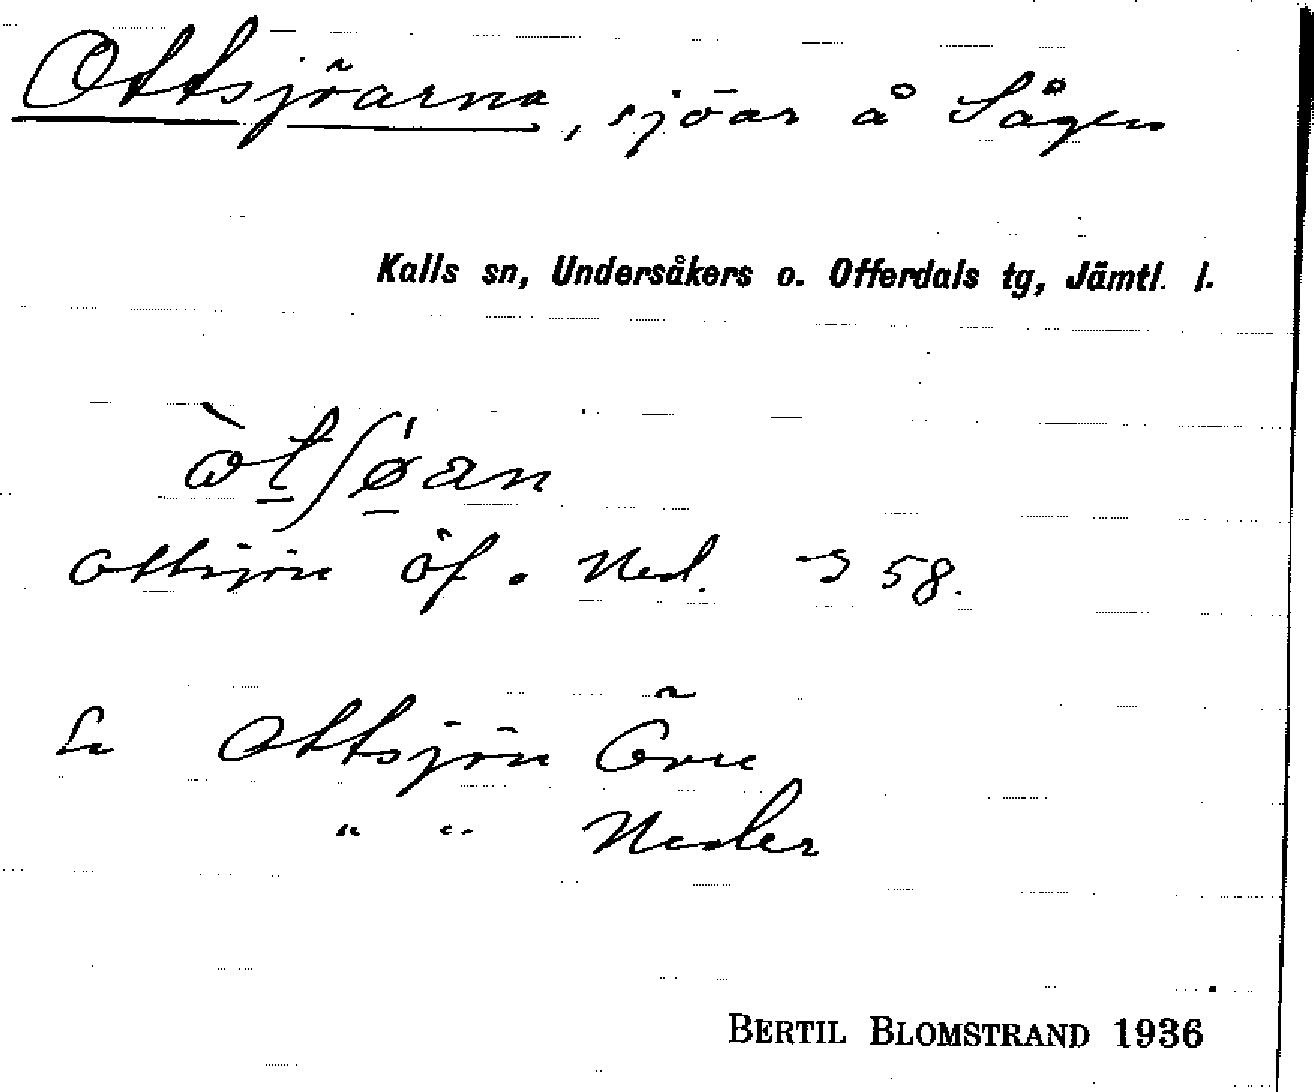 Ottsjöarna, sjöar å Sågen
Kalls sn, Undersåkers o. Offerdals tg, Jämtl. l.
Ottsjön öf. Ned. 58.
Ottsjön Övre
" " Neder
BERTIL BLOMSTRAND 1936